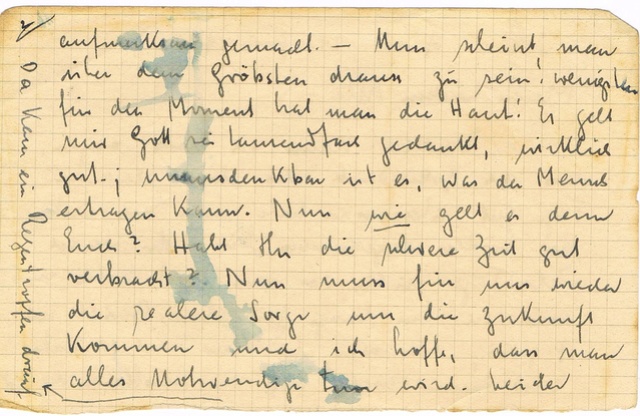 2)
aufmerksam gemacht. — Nun scheint man
über dem Gröbsten draus zu sein! wenigsten
für den Moment hat man die Haut! Es geht
mir Gott sei tausendfach gedankt, wirklich
gut.; unausdenkbar ist es, was der Mensch
ertragen kann. Nun wie geht es denn
Euch? Habt Ihr die schwere Zeit gut
verbracht? Nun muss für uns wieder
die realere Sorge um die Zukunft
kommen und ich hoffe, dass man
alles Notwendige tun wird. Leider
Da kam ein Regentropfen drauf